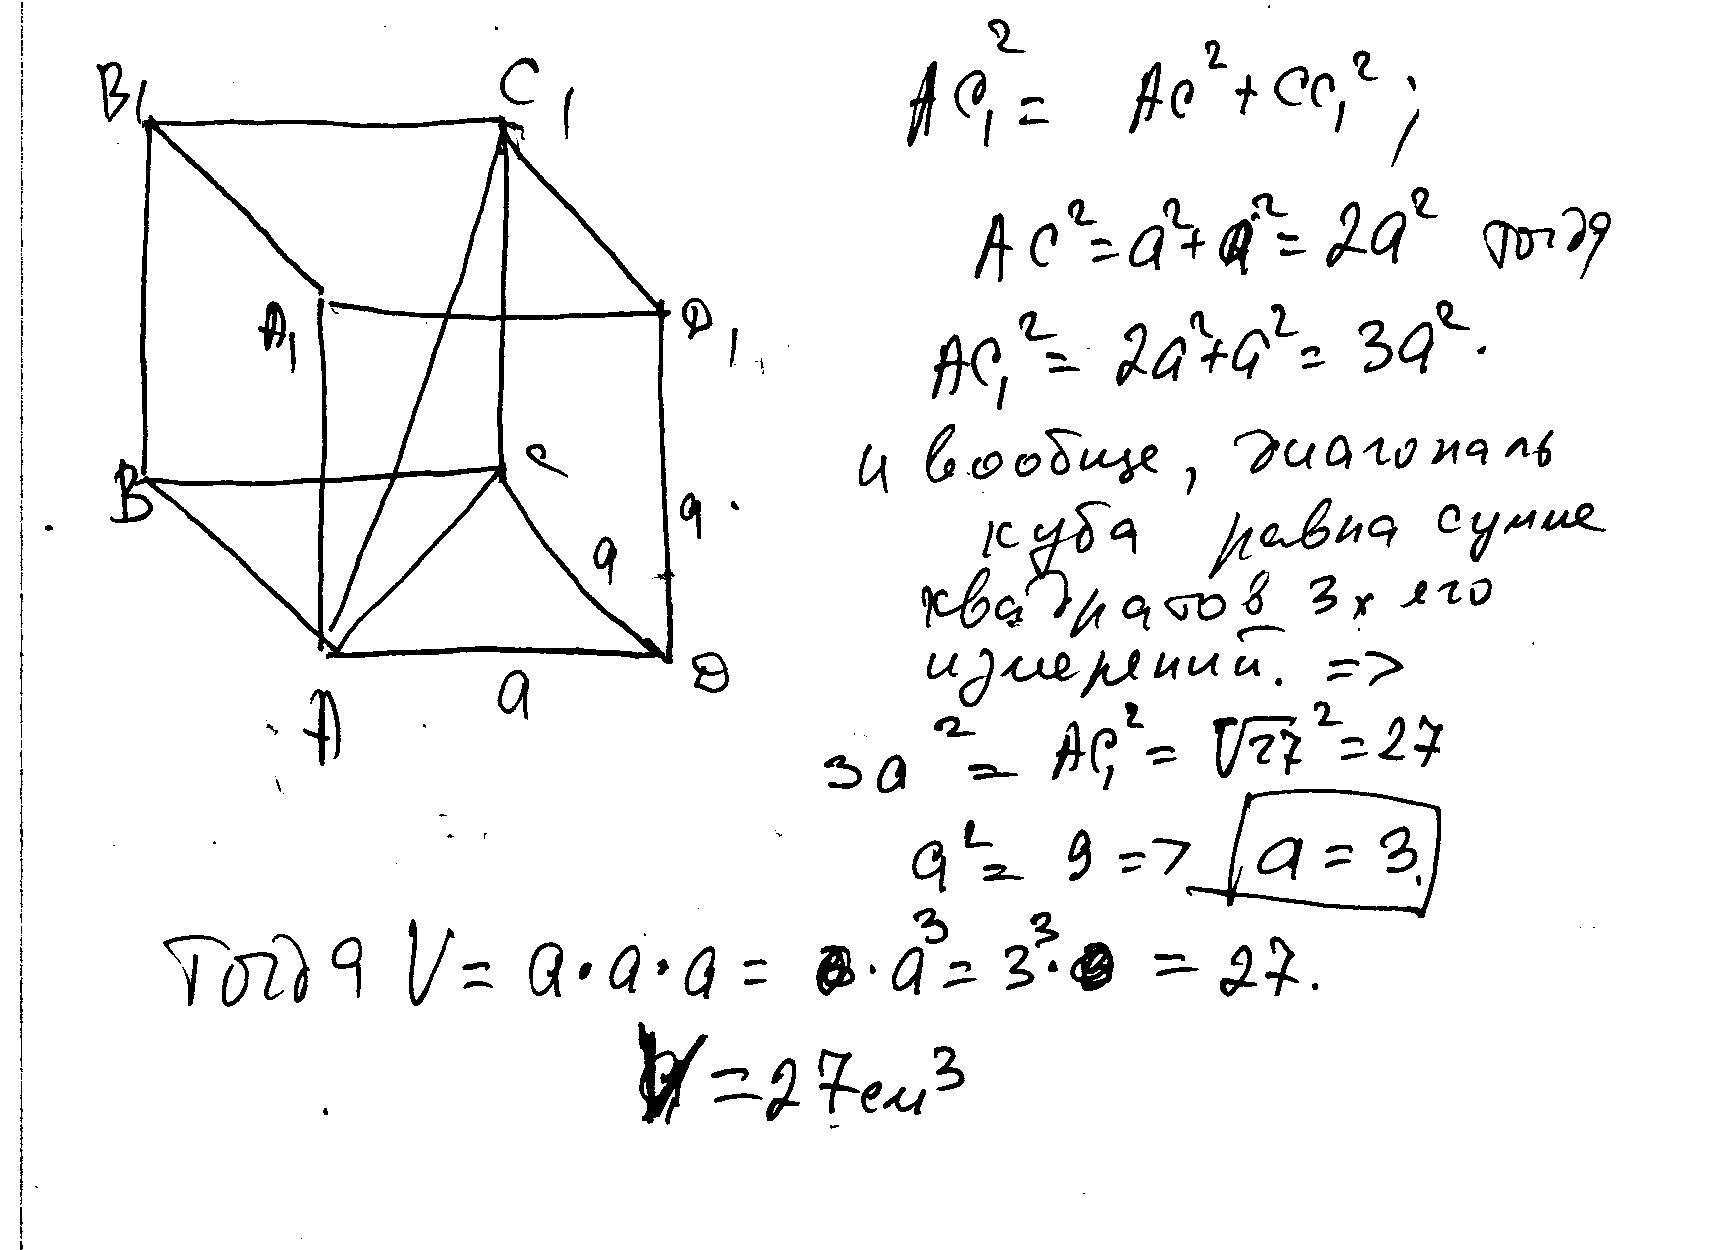 B₁
C₁
A₁
D₁
B
C
a
a
A
a
D
AC₁² = AC² + CC₁² ;
AC² = a² + a² = 2a² тогда
AC₁² = 2a² + a² = 3a².
и вообще, диагональ
куба равна сумме
квадратов 3х его
измерений. =>
3a² = AC₁² = √27² = 27
a² = 9 => a = 3.
Тогда V = a · a · a = · a³ = 3³ · = 27.
V = 27 см³